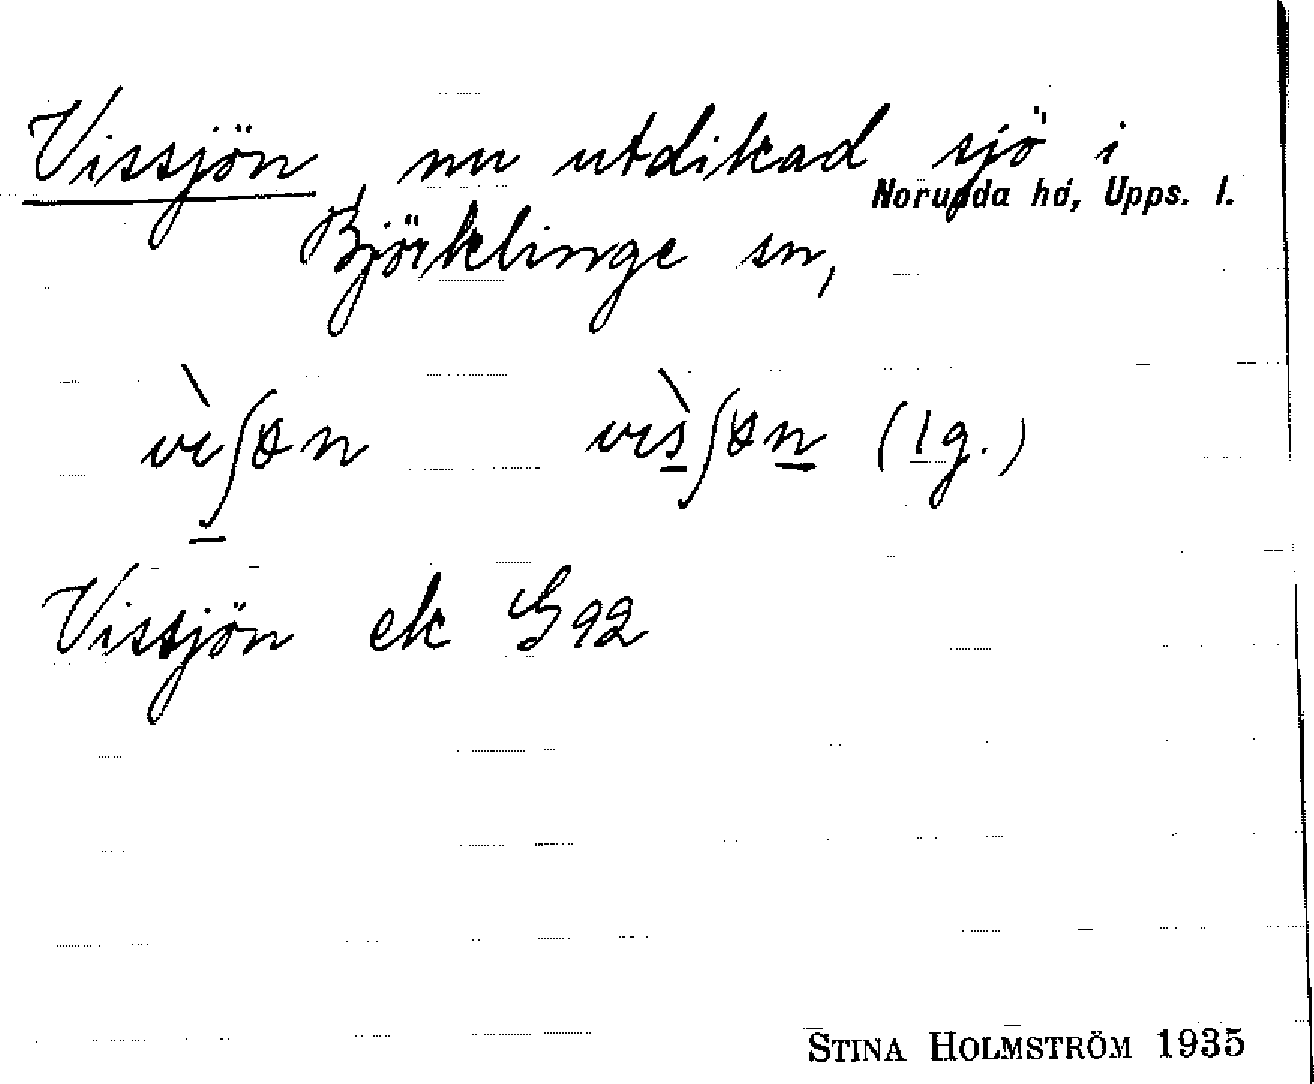 Vissjön, nu utdikad sjö i
Norunda hd, Upps. l.
Björklinge sn,
(1 g.)
Vissjön ek G 92
STINA HOLMSTRÖM 1935